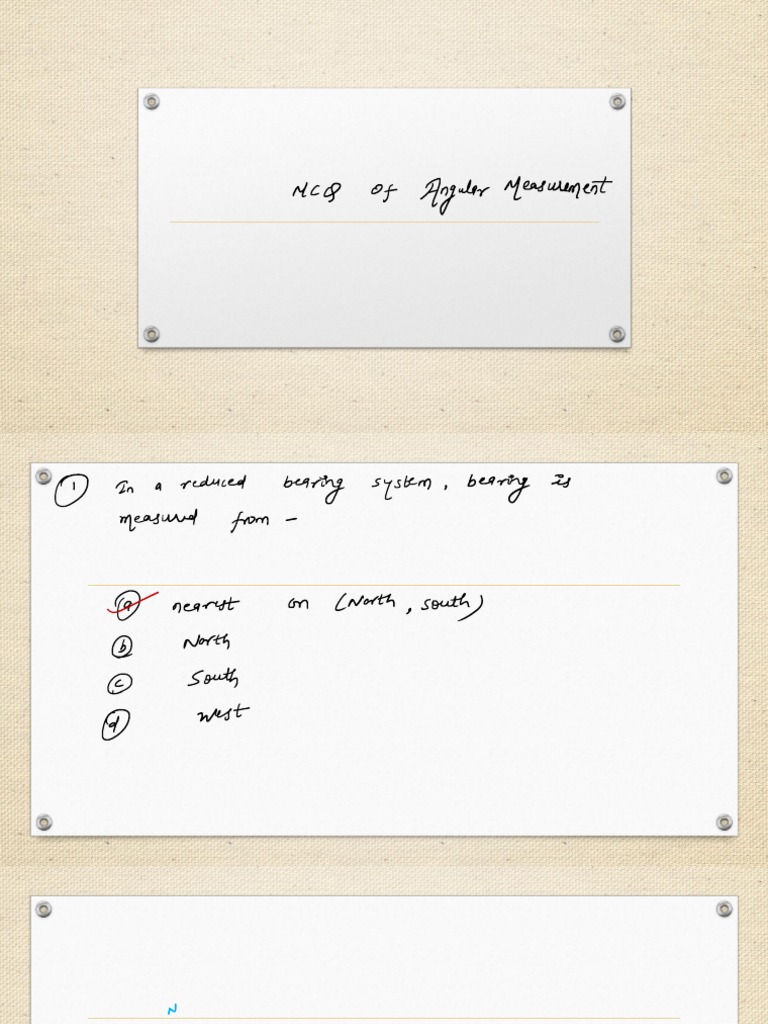 MCQ Of Angular Measurement
① In a reduced bearing system, bearing is
measured from -
ⓐ nearest on (North, South)
ⓑ North
ⓒ South
ⓓ West
N